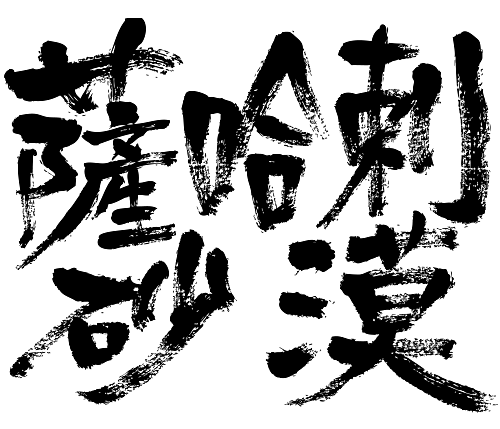 薩哈剌
砂漠